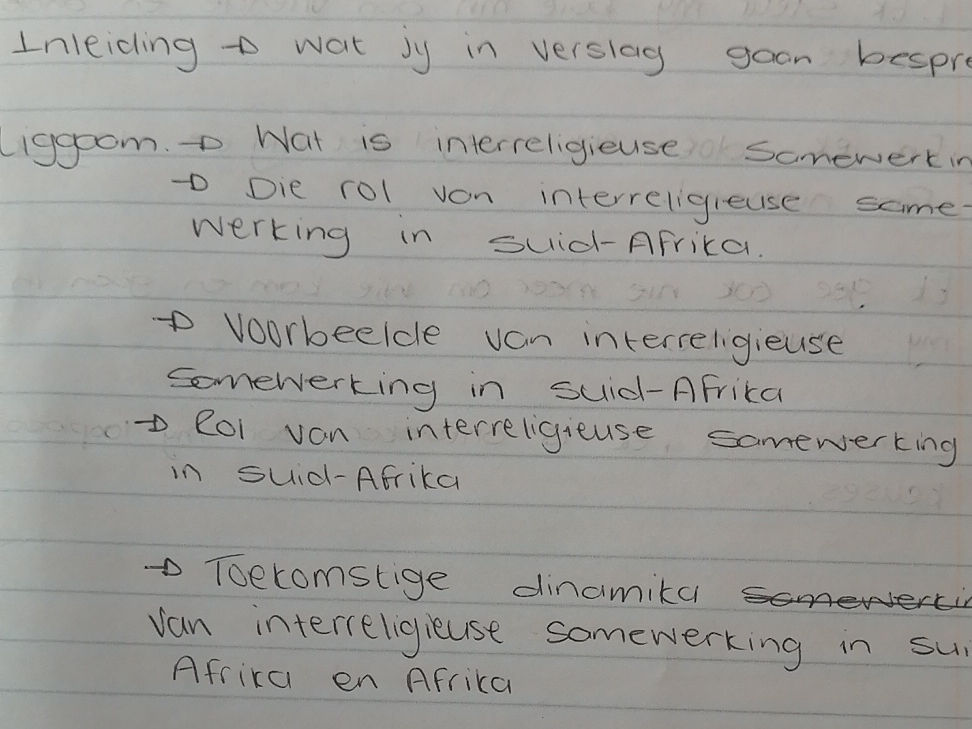 Inleiding → wat jy in verslag gaan bespre
Liggaam. → Wat is interreligieuse samewerkin
→ Die rol van interreligieuse same-
werking in Suid-Afrika.
→ Voorbeelde van interreligieuse
samewerking in Suid-Afrika
→ Rol van interreligieuse samewerking
in Suid-Afrika
→ Toekomstige dinamika samewerkin
van interreligieuse samewerking in sui
Afrika en Afrika